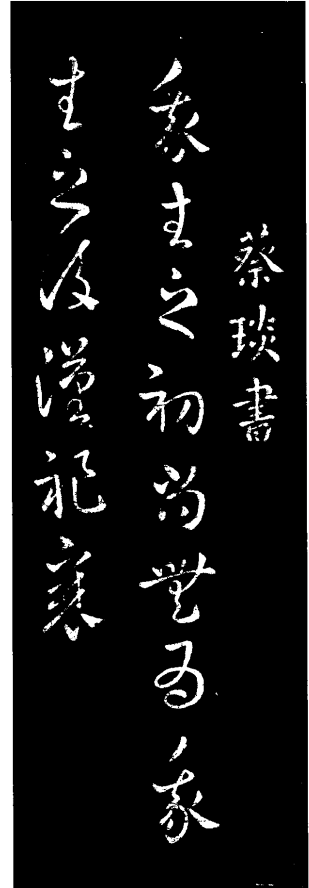 蔡琰書
我生之初尚無為我
生之後漢祀衰